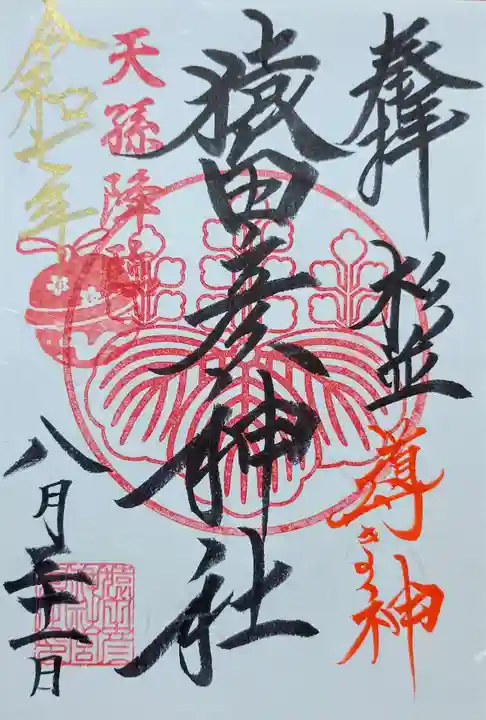 奉拝
杉並
導きの神
猿田彦神社
天孫降
令和七年
八月二十一日